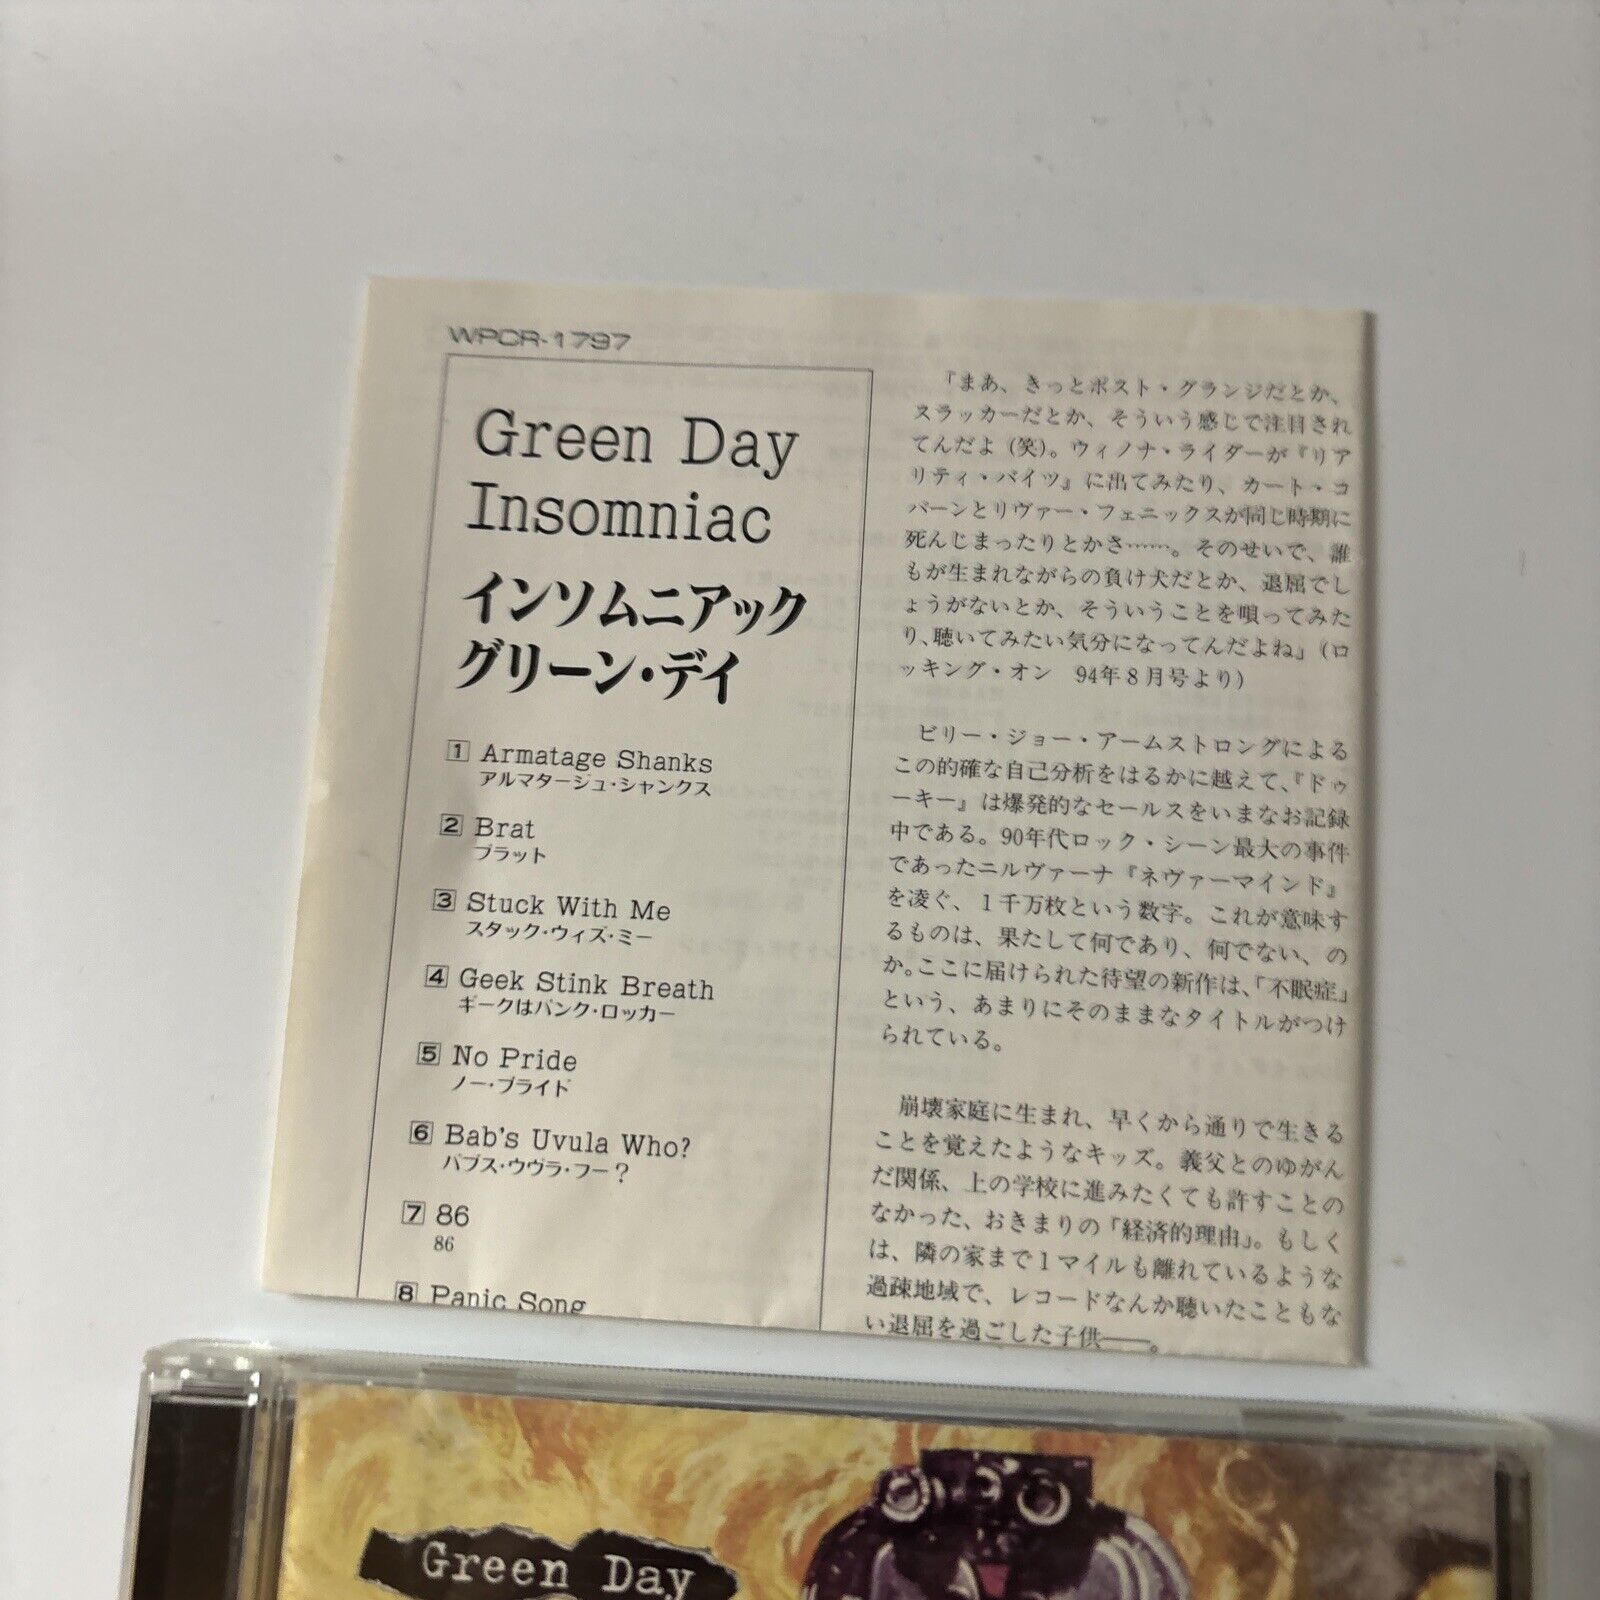 WPCR-1797
Green Day
Insomniac
インソムニアック
グリーン・デイ
1 Armatage Shanks
アルマタージュ・シャンクス
2 Brat
ブラット
3 Stuck With Me
スタック・ウィズ・ミー
4 Geek Stink Breath
ギークはパンク・ロッカー
5 No Pride
ノー・プライド
6 Bab's Uvula Who?
バブス・ウヴラ・フー？
7 86
86
8 Panic Song
「まあ、きっとポスト・グランジだとか、
スラッカーだとか、そういう感じで注目され
てんだよ（笑）。ウィノナ・ライダーが『リア
リティ・バイツ』に出てみたり、カート・コ
バーンとリヴァー・フェニックスが同じ時期に
死んじまったりとかさ……。そのせいで、誰
もが生まれながらの負け犬だとか、退屈でし
ょうがないとか、そういうことを唄ってみた
り、聴いてみたい気分になってんだよね」（ロ
ッキング・オン　94年８月号より）
ビリー・ジョー・アームストロングによる
この的確な自己分析をはるかに越えて、『ドゥ
ーキー』は爆発的なセールスをいまなお記録
中である。90年代ロック・シーン最大の事件
であったニルヴァーナ『ネヴァーマインド』
を凌ぐ、１千万枚という数字。これが意味す
るものは、果たして何であり、何でない、の
か。ここに届けられた待望の新作は、「不眠症」
という、あまりにそのままなタイトルがつけ
られている。
崩壊家庭に生まれ、早くから通りで生きる
ことを覚えたようなキッズ。義父とのゆがん
だ関係、上の学校に進みたくても許すことの
なかった、おきまりの「経済的理由」。もしく
は、隣の家まで１マイルも離れているような
過疎地域で、レコードなんか聴いたこともな
い退屈を過ごした子供──。
Green Day